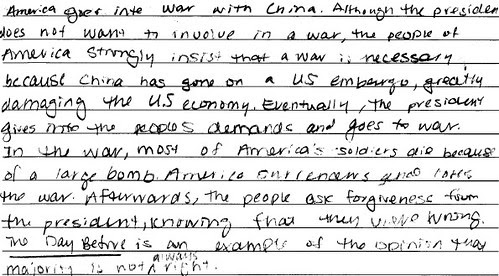 America goes into war with China. Although the presiden
does not want to involve in a war, the people of
America strongly insist that a war is necessary
because China has gone on a US embargo, greatly
damaging the U.S economy. Eventually, the president
gives into the peoples demands and goes to war.
In the war, most of America's soldiers die because
of a large bomb. America surrenders and loses
the war. Afterwards, the people ask forgiveness from
the president, knowing that they were wrong.
The Day Before is an example of the opinion that
majority is not always right.